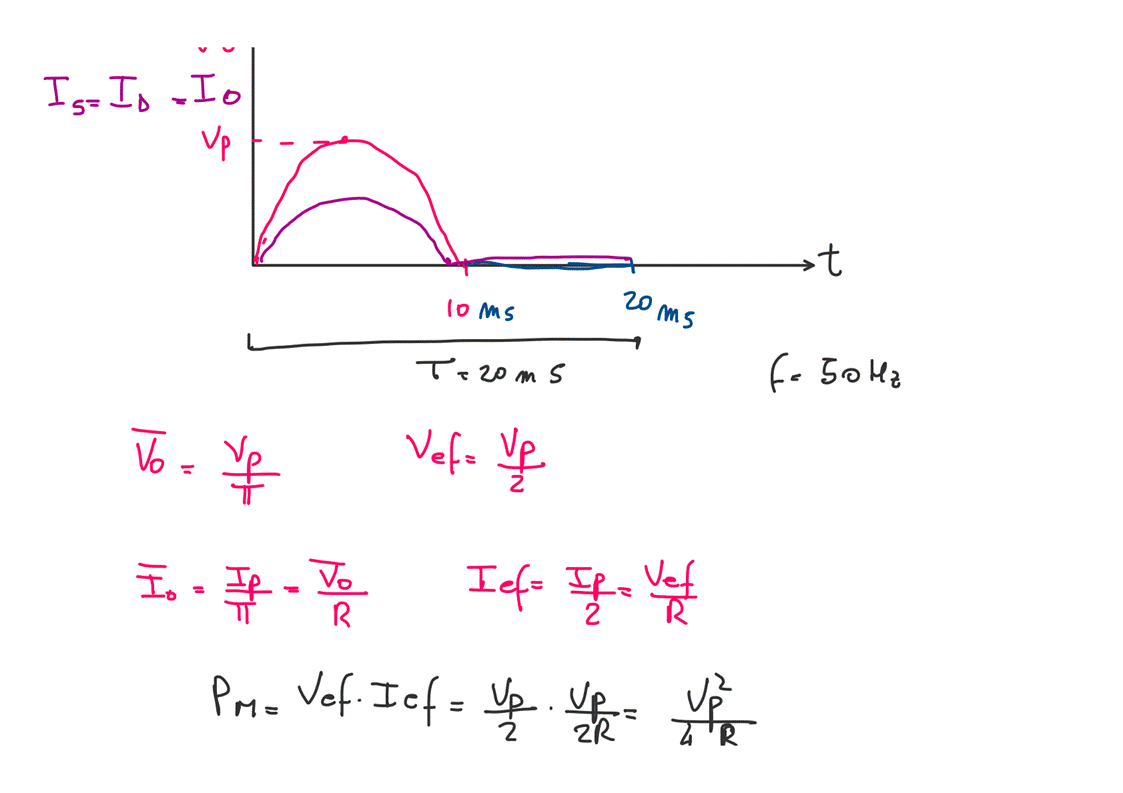 I_S = I_D = I_O
V_P
t
10 ms
20 ms
T = 20 ms
f = 50 Hz
V̅_o = V_P/π
V_ef = V_P/2
I̅_o = I_P/π = V̅_o/R
I_ef = I_P/2 = V_ef/R
P_M = V_ef · I_ef = V_P/2 · V_P/2R = V_P²/4R